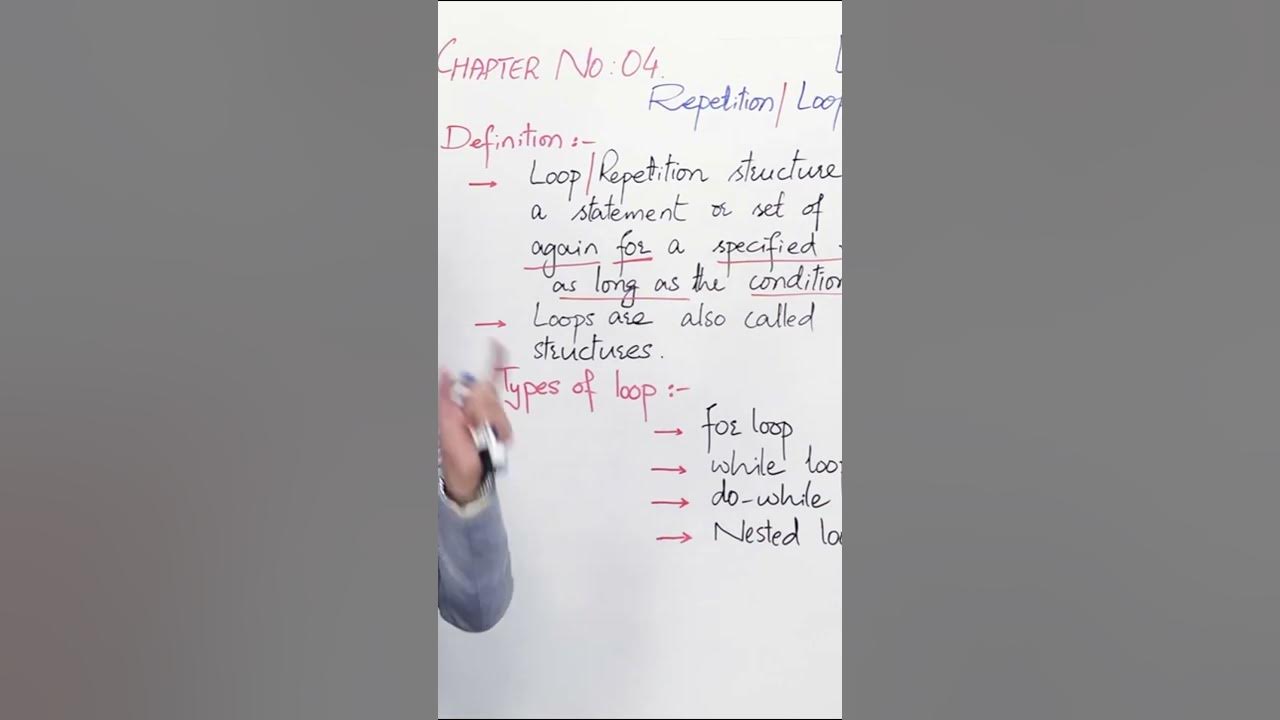 CHAPTER No:04.
Repetition/Loop
Definition:-
→ Loop/Repetition structure
a statement or set of
again for a specified
as long as the condition
→ Loops are also called
structures.
Types of loop :-
→ for loop
→ while loop
→ do-while
→ Nested